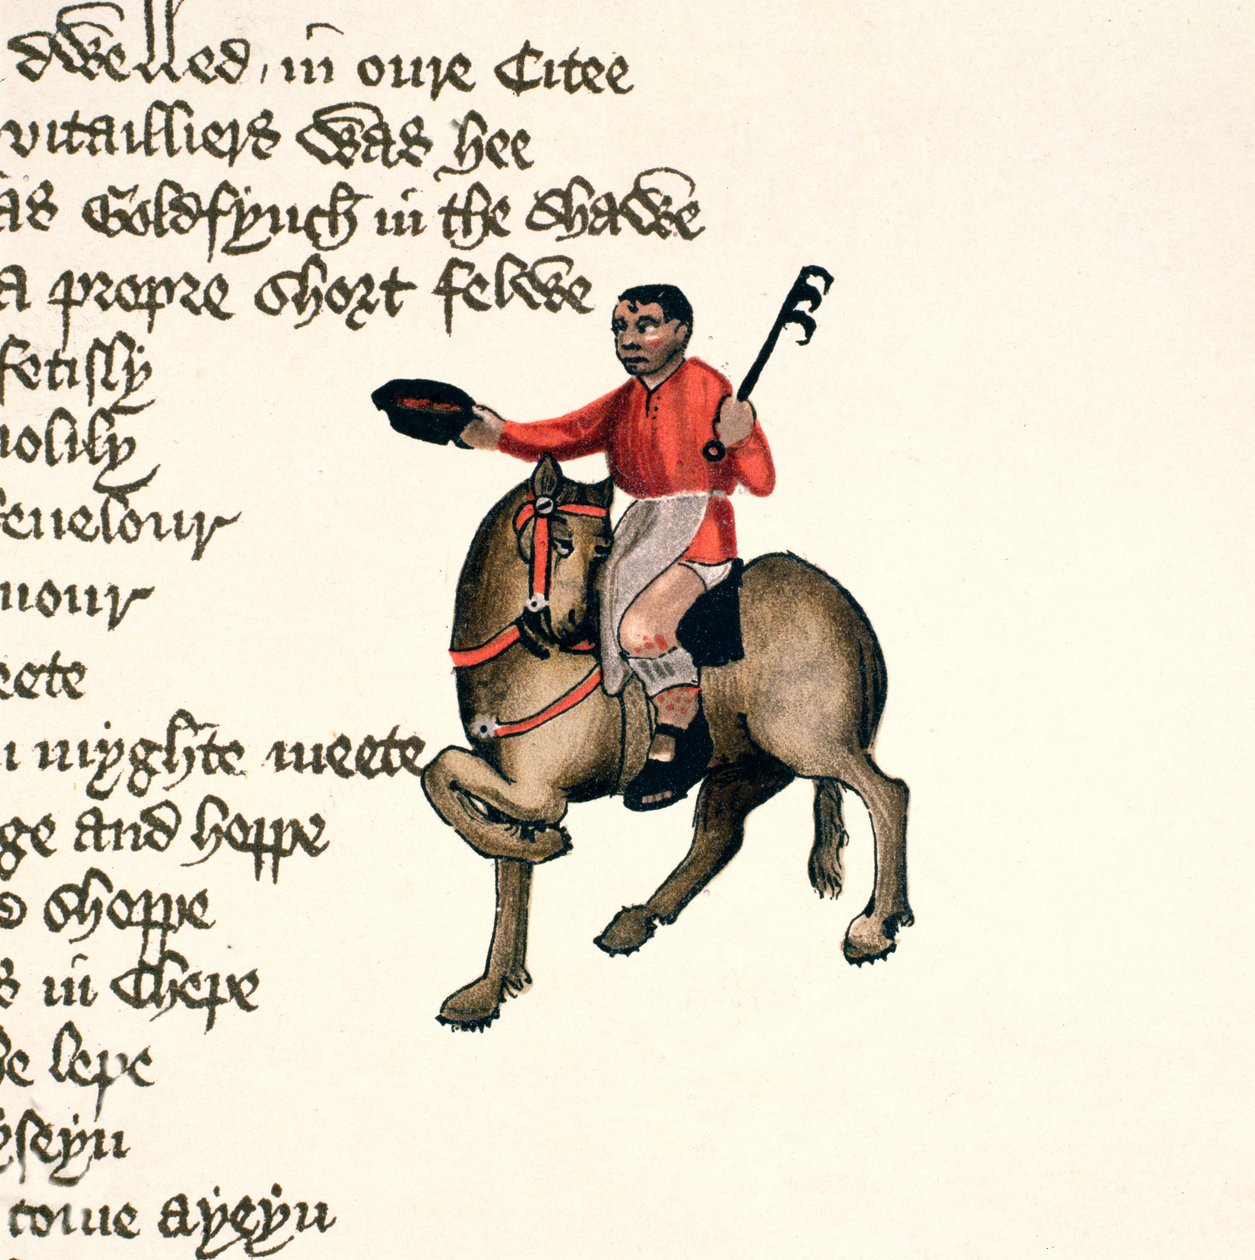 dwelled / in oure Citee
vitailliers was hee
as Goldfynch in the shawe
a propre short felwe
fetisly
iolily
euelour
mour
eete
myghte meete
ge and hoppe
shoppe
s in Chepe
he lepe
yseyn
towe ayeyn